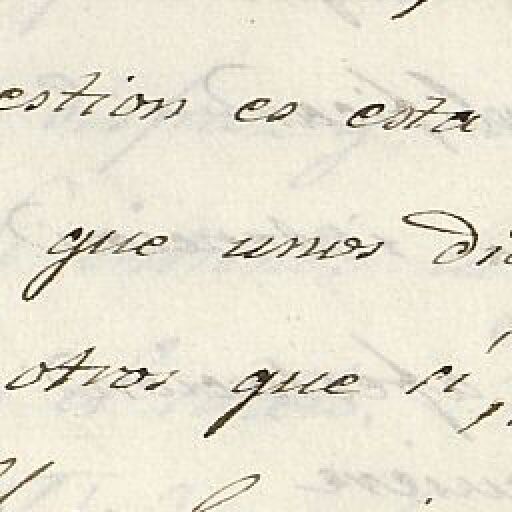 estion es esta
que unos di
otros que sí,